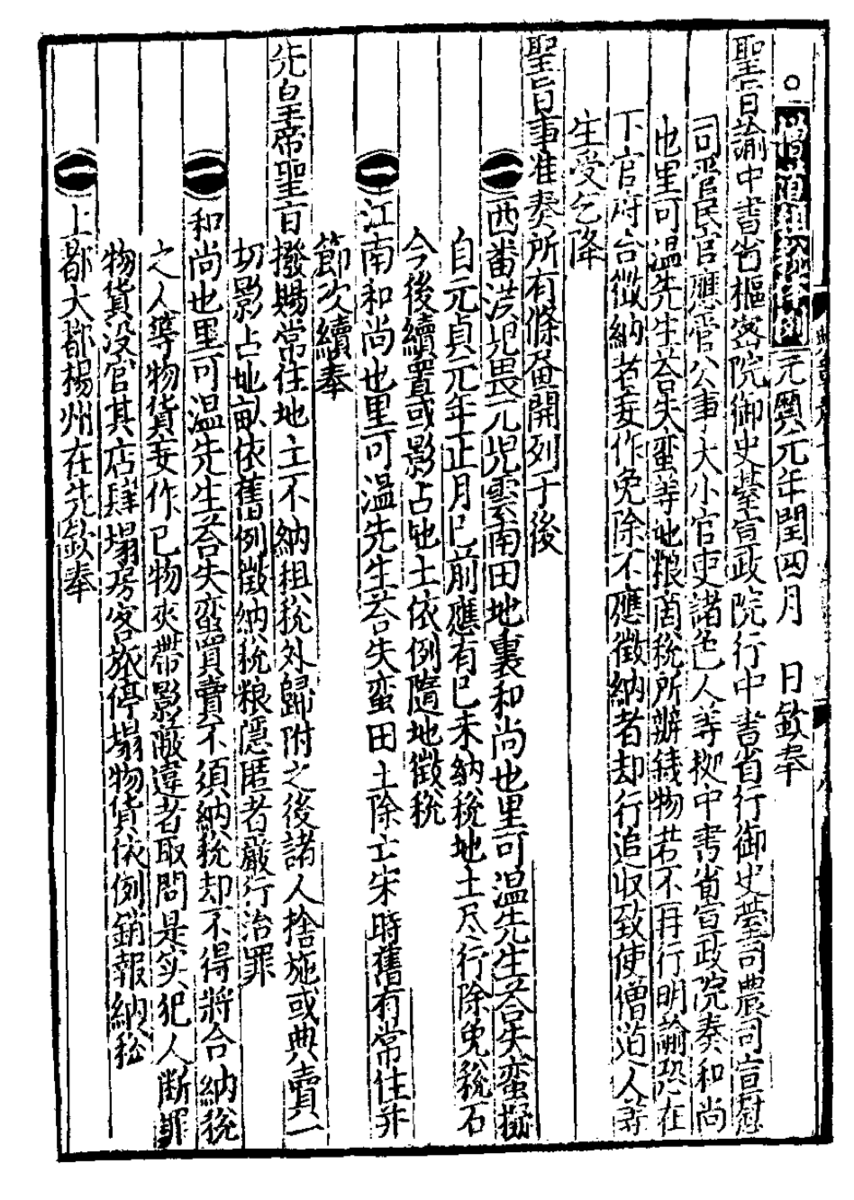 ○僧道租稅體例元貞元年閏四月　日欽奉
聖旨諭中書省樞密院御史臺宣政院行中書省行御史臺司農司宣慰
司管民官應管公事大小官吏諸色人等據中書省宣政院奏和尚
也里可温先生荅失蠻等地粮商稅所辦錢物若不再行明諭恐在
下官府合徵納者妄作免除不應徵納者却行追収致使僧道人等
生受乞降
聖旨事准奏所有條畫開列于後
一西番漢児畏兀児雲南田地裏和尚也里可温先生荅失蠻擬
自元貞元年正月已前應有已未納稅地土尽行除免稅石
今後續置或影占地土依例隨地徵稅
一江南和尚也里可温先生荅失蠻田土除亡宋時舊有常住并
節次續奉
先皇帝聖旨撥賜常住地土不納租稅外歸附之後諸人捨施或典賣一
切影占地畒依舊例徵納稅粮隱匿者嚴行治罪
一和尚也里可温先生荅失蠻買賣不須納稅却不得將合納稅
之人等物貨妄作己物夾帶影蔽違者取問是实犯人断罪
物貨没官其店肆塌房客旅停塌物貨依例銷報納稅
一上都大都楊州在先欽奉